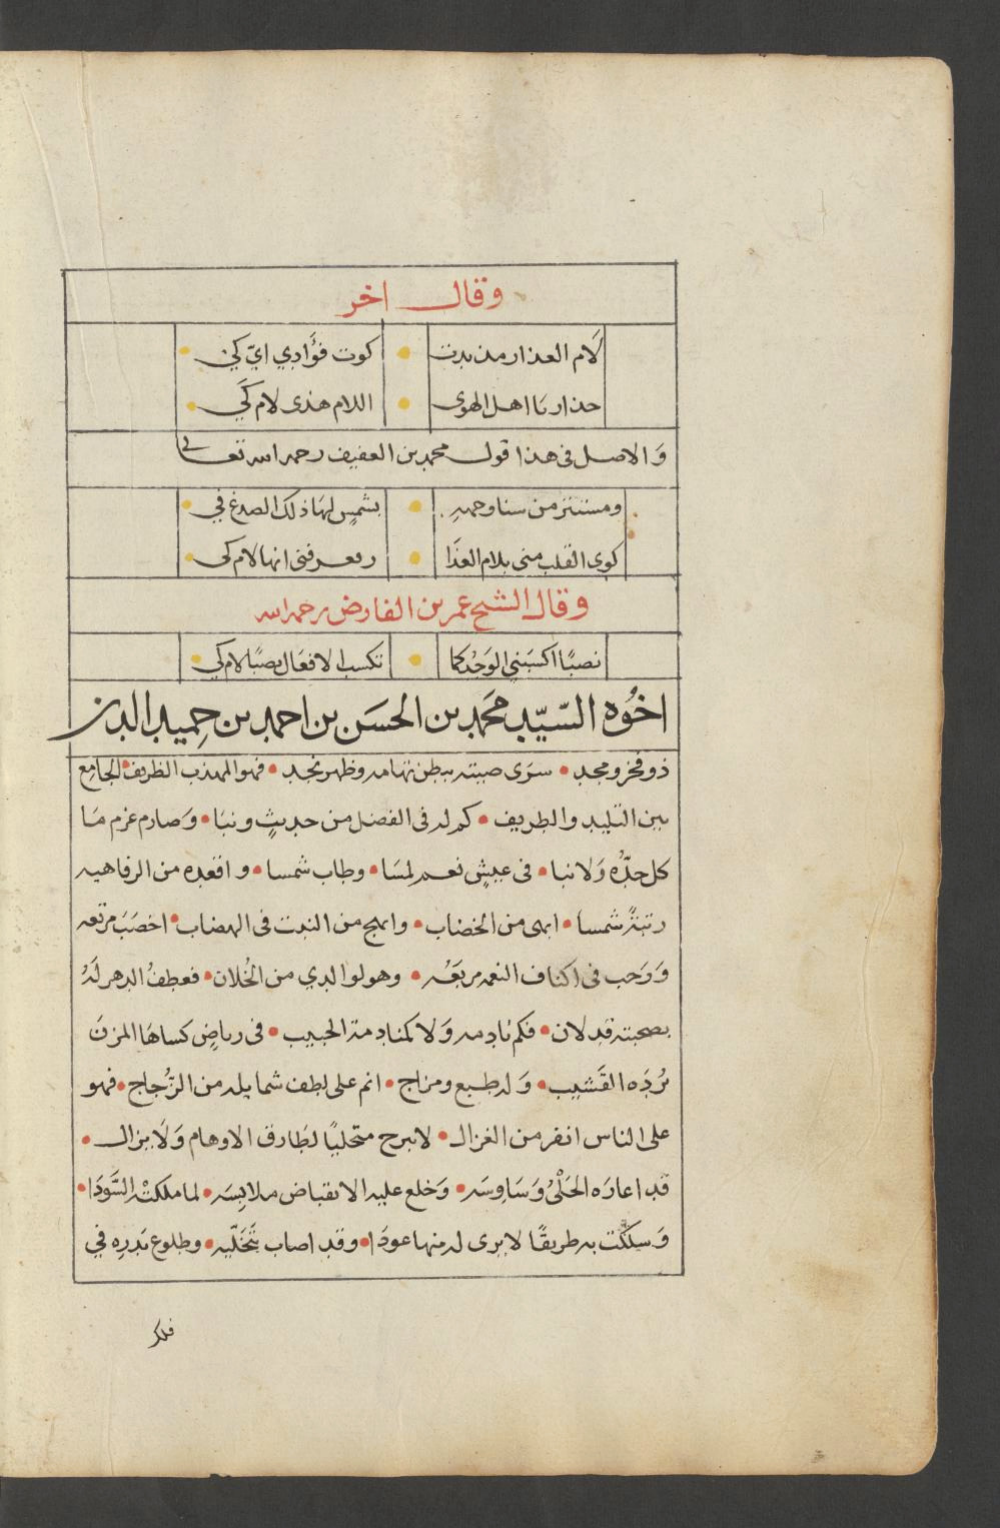 وقال اخر
لَام العذار مذ بدت • كوت فؤادي ايّ كي •
حذار يا اهل الهوى • اللام هذى لام كَي •
وَ الاصل فى هذا قول محمد بن العفيف رحمه الله تعالى
ومستتر من سنا وجهه • بشمسٍ لهَا ذلك الصدغ في •
كوى القلب منى بلام العذَا • ر فعرفنى انها لام كى •
وقال الشيخ عمر بن الفارض رحمه الله
نصبًا اكسَبَني الوَجْدُ كما • تكسب الافعَال نصبًا لام كي •
اخُوه السّيّد محَمد بن الحسَن بن احمد بن حِميد الدين
ذو فخر ومجد • سرَى صيته ببطن تهامه وظهر نجد • فهو المهذب الظريف • الجامِع
بين التليد والطريف • كم له فى الفضل من حديثٍ ونبَا • وَصارم عزم مَا
كل حدُّه وَلا نبا • فى عيشٍ نعم لمسَا • وطاب شمسا • و اقعده من الرفاهيه
رتبةً شمسا • ابهى من الخضاب • وابهج من النبت فى الهضاب • اخصَبَ مرتعه
وَرَحب فى اكناف النعمه مربَعُه • وهو لوالدي من الخُلان • فعطفُ الدهر لَهُ
بصحبته قد لان • فكم نادمه وَلا كمنادمة الحبيب • فى رياضٍ كساهَا المزنَ
بُردَه القَشيب • وَ له طبع ومزاج • انم على لطف شمايله من الزُجاج • فهو
على الناس انفر من الغزال • لا يبرح متحليًا لطَارق الاوهام وَلَا يزال •
قد اعارَه الحَلْىُ وَسَاوسَه • وَخلع عليه الانقباض ملابِسَه • لما ملكتْه السَّودَا •
وَسلكَت به طريقًا لا يرى له منها عودَا • وقد اصاب بتَخَلّيه • وطلوع بَدره في
فلك